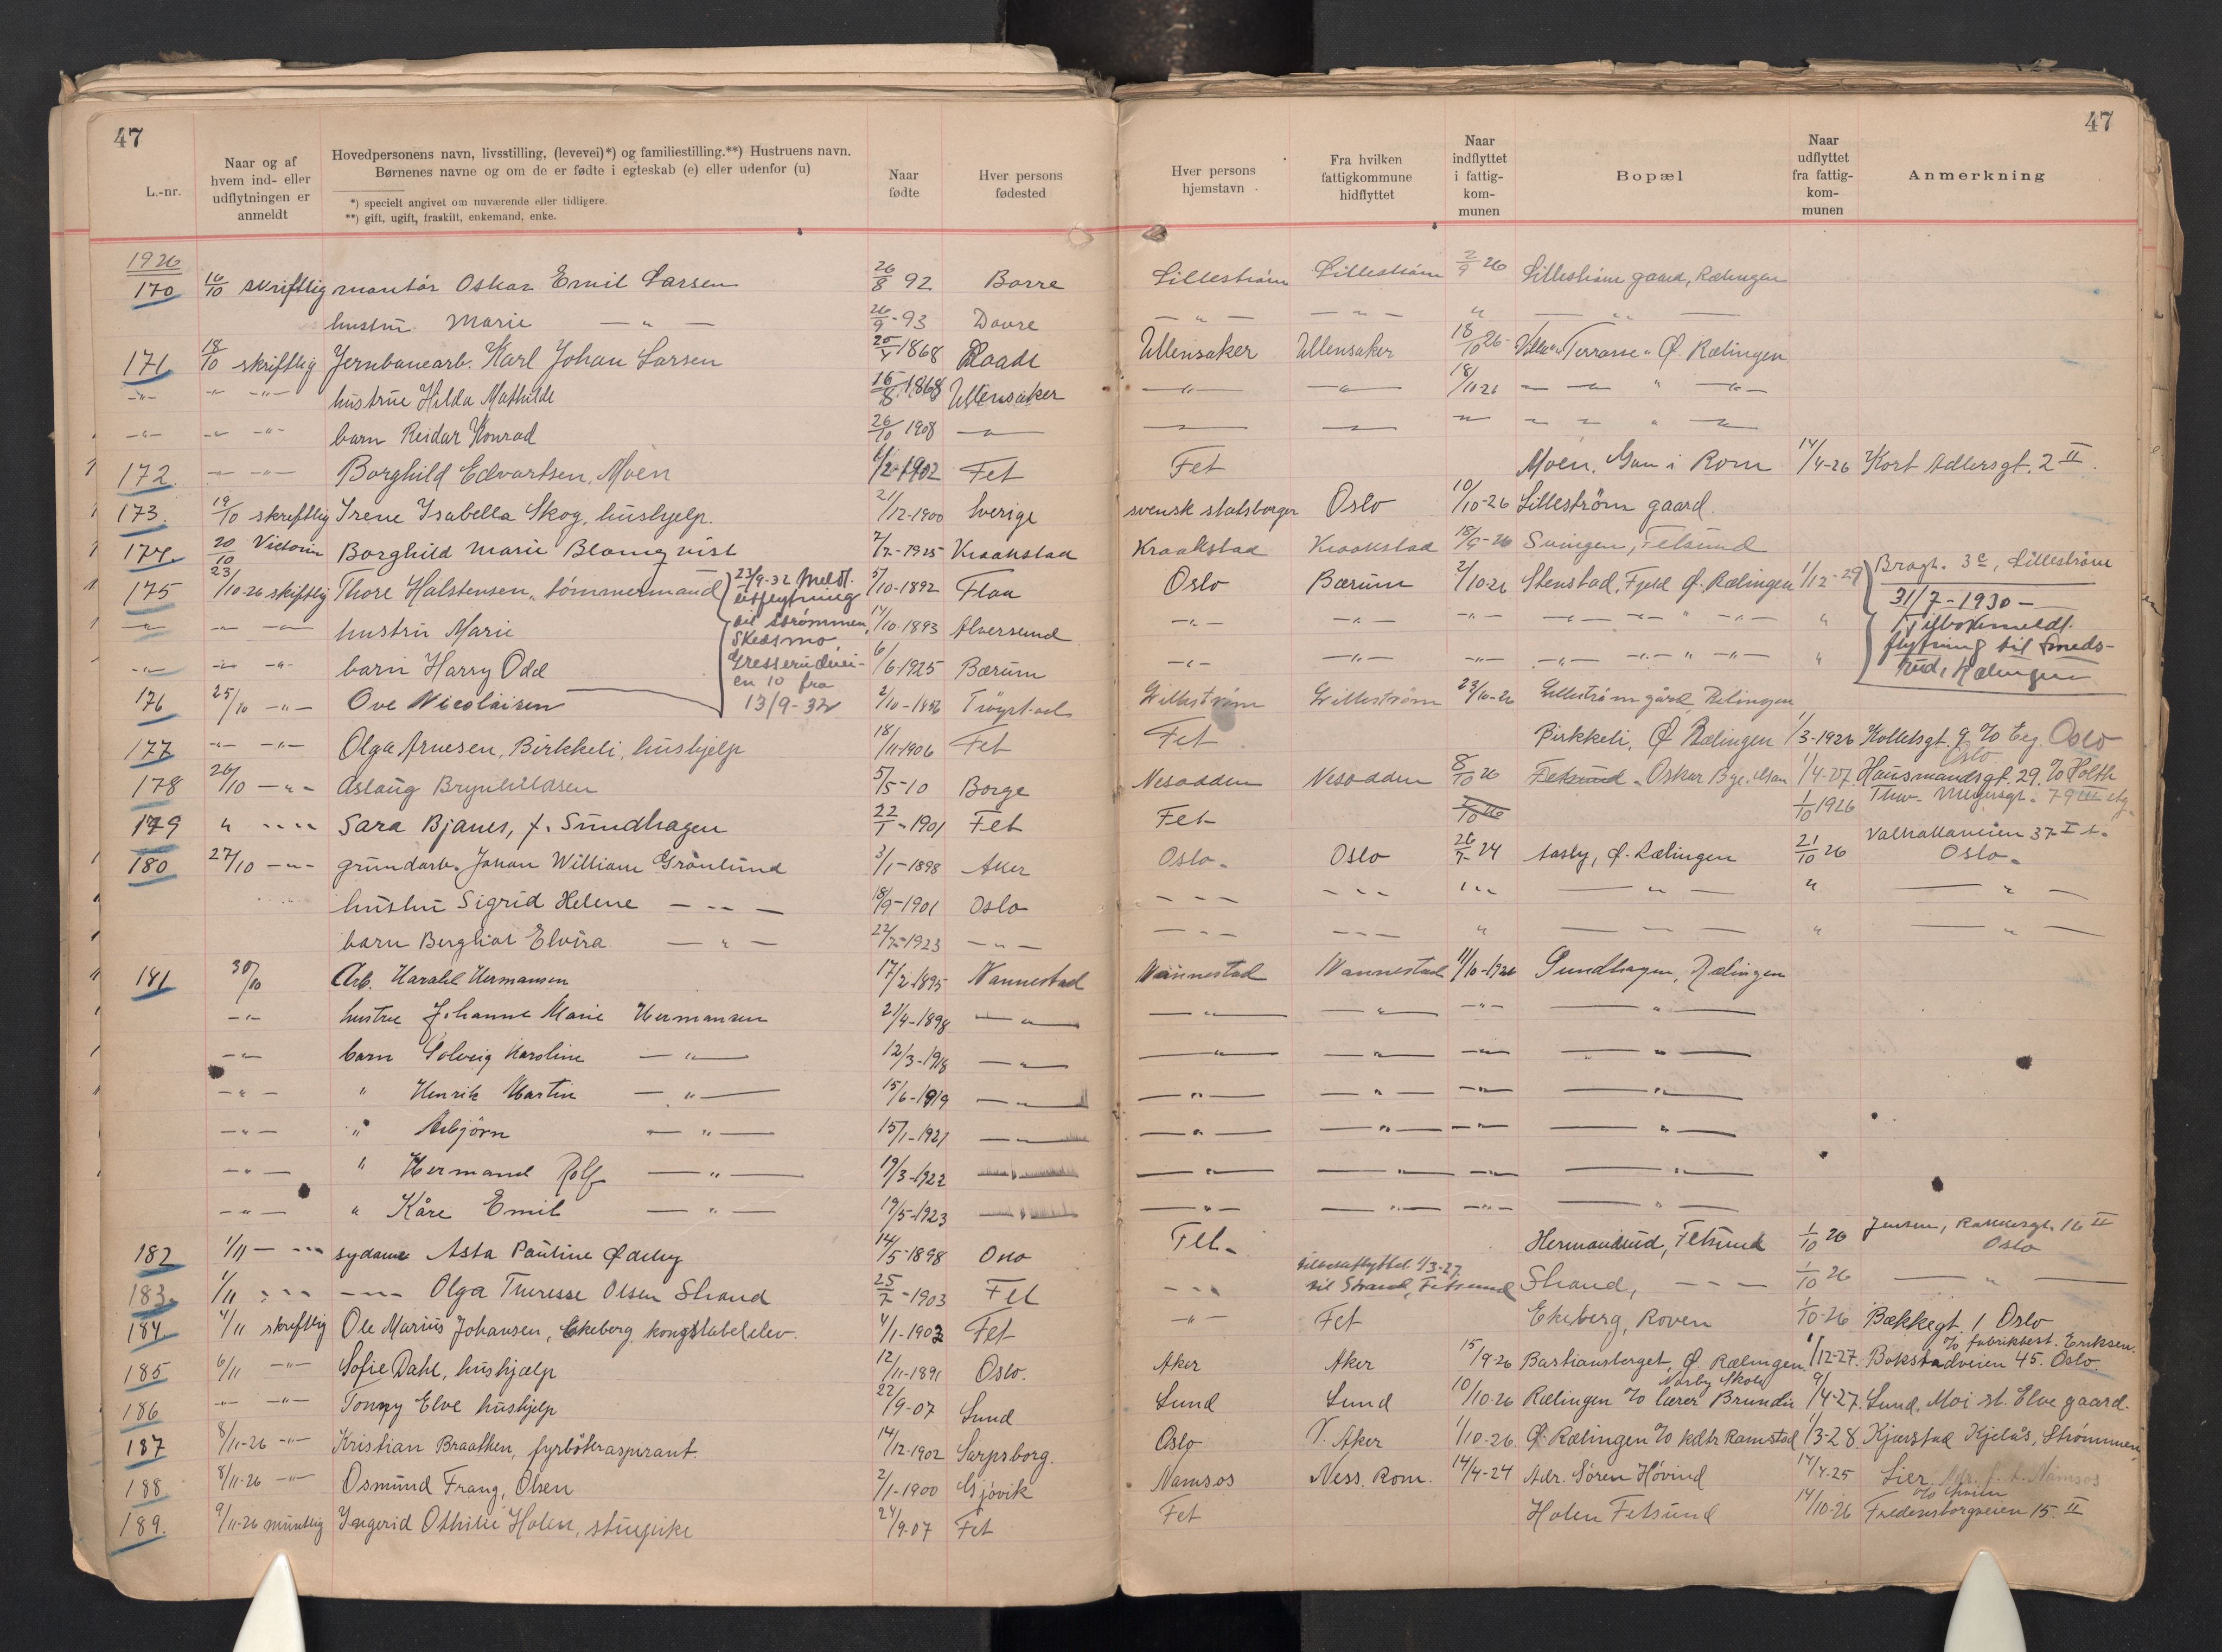 47
47
L.-nr.
Naar og af hvem ind- eller udflytningen er anmeldt
Hovedpersonens navn, livsstilling, (levevei)*) og familiestilling.**) Hustruens navn.
Børnenes navne og om de er fødte i egteskab (e) eller udenfor (u)
*) specielt angivet om nuværende eller tidligere.
**) gift, ugift, fraskilt, enkemand, enke.
Naar fødte
Hver persons fødested
Hver persons hjemstavn
Fra hvilken fattigkommune hidflyttet
Naar indflyttet i fattig-kom-munen
Bopæl
Naar udflyttet fra fattig-kom-munen
Anmerkning
1926
170 16/10 skriftlig montör Oskar Emil Larsen 26/8 92 Borre Lilleström Lilleström 2/9 26 Lilleström gaard, Rælingen
hustru Marie — " — 26/9-93 Dovre — " — — " — " — " —
171 18/10 skriftlig Jernbanearb. Karl Johan Larsen 1868 Raade Ullensaker Ullensaker 18/10 26 Villa "Terrasse" Ø. Rælingen
-"- -"- -"- hustrue Hilda Mathilde 15/8 1868 Ullensaker —"— —"— 18/10 26 — — " —
-"- -"- -"- barn Reidar Konrad 26/10 1908 —"— — — — — — " —
172 -"- -"- Borghild Edvartsen, Moen 1/2-1902 Fet Fet Moen, Gan i Rom 14/4-26 Kort Adlersgt. 2 II.
173. 19/10 skreftlig Irene Isabella Skog, hushjelp. 21/12-1900 Sverige svensk statsborger Oslo 10/10-26 Lilleström gaard.
174. 20/10 Victorin Borghild Marie Blomqvist 2/7-1925 Kraakstad Kraakstad Kraakstad 18/9-26 Svingen, Fetsund
175 23/10-26 skriftlig Thore Halstensen, tömmermand 5/10-1892 Flaa Oslo Bærum 2/10-26 Stenstad, Fjeld Ø. Rælingen 1/12-29 3c, Lilleström
23/9-32 Meldt. utflytning til Strømmen, Skedsmo, en 10 fra 13/9-32
31/7-1930- Tilbakemeldt. flytning til Smeds-rud, Rælingen
-"- -"- -"- hustru Marie 14/10-1893 Alversund -"- -"- -"- -"- -"- " -"- "
-"- -"- -"- barn Harry Odd 6/6-1925 Bærum -"- -"- -"- -"- -"- " -"- "
176 25/10 -"- Ove Nicolaisen 2/10-1856 Trøgstad Lilleström Lilleström 23/10-26 Lilleström gård, Rælingen
177 -"- -"- Olga Arnesen, Birkkeli, hushjelp 18/11-1906 Fet Fet Birkkeli, Ø Rælingen 1/3-1926 Holtetsgt. 9 c/o Eeg Oslo
178 26/10 -"- Aslaug Brynhildsen 5/5-10 Borge Nesodden Nesodden 8/10 26 Fetsund - Oskar Bye 1/4-27 Hausmandsgt. 29. c/o Holth Oslo
179 " -"- Sara Bjanes, f. Sundhagen 22/1-1901 Fet Fet 1/10 26 1/10 1926 Thv. Meyersgt. 79 III
180 27/10 -"- grundarb. Johan William Grönlund 3/1-1898 Aker Oslo Oslo 26/7-24 Aasby, Ø. Rælingen 21/10 26 Valhallaveien 37 I Oslo
hustru Sigrid Helene — " — 18/9-1901 Oslo - - - - - - " — " — " — " —
barn Bergliot Elvira — " — 22/7-1923 - " - - - - - - - " — " — " — " —
181 30/10 Arb. Harald Hermansen 17/2-1895 Nannestad Nannestad Nannestad 11/10-1926 Sundhagen, Rælingen
-"- hustru Johanne Marie Hermansen 21/4-1898 —"— —"— —"— -"- —"—
-"- barn Solveig Karoline —"— 12/3-1918 —"— —"— —"— -"- —"—
-"- " Henrik Martin —"— 15/6-1919 —"— —"— —"— -"- —"—
-"- " Asbjörn —"— 15/1-1921 —"— —"— —"— -"- —"—
-"- " Hermand Rolf —"— 19/3-1922 —"— —"— —"— -"- —"—
-"- " Kåre Emil —"— 19/5-1923 —"— —"— —"— -"- —"—
182 1/11 -"- sydame Asta Pauline Ødeby 14/5-1898 Oslo Fet. Hermansrud, Fetsund 1/10 26 Jensen, 16 II Oslo
183. 1/11 -"- -"- Olga Theresse Olsen Strand 25/7-1903 Fet -"- tilbakeflyttet 1/3-27 til Strand, Fetsund Strand, -"- 1/10 26 —"—
184. 4/11 skreftlig Ole Marius Johansen, Ekeberg, kongstabelelev. 4/1-1903 Fet -"- Fet Ekeberg, Roven 1/10-26 Bækkegt. 1 Oslo
185 6/11 -"- Sofie Dahl, hushjælp 12/11-1891 Oslo. Aker Aker 15/9-26 Bastiansberget, Ø. Rælingen 1/12-27. c/o fabrikbest. Eriksen. Bokstadveien 45. Oslo.
186 -"- -"- Tonny Elve hushjelp 22/9-07 Lund Lund Lund 10/10-26 Rælingen c/o lærer Brundin Norby Skole 9/4-27. Lund, Moi st. Elve gaard.
187 8/11-26 -"- Kristian Braathen, fyrböteraspirant. 14/12-1902 Sarpsborg. Oslo V. Aker 1/10-26. Ø. Rælingen c/o Ramstad 1/3-28. Kjærstad Kjelås, Strømmen
188 8/11-26 -"- Osmund Frang, Olsen 2/1-1900 Gjøvik Namsos Ness. Rom. 14/4-24 Adr. Sören Hövind 14/4-25 Lier Namsos
189. 9/11-26 muntlig Ingerid Othilie Holen, stuepike 24/9-07 Fet Fet Holen Fetsund 14/10-26 Fredensborgveien 15. II